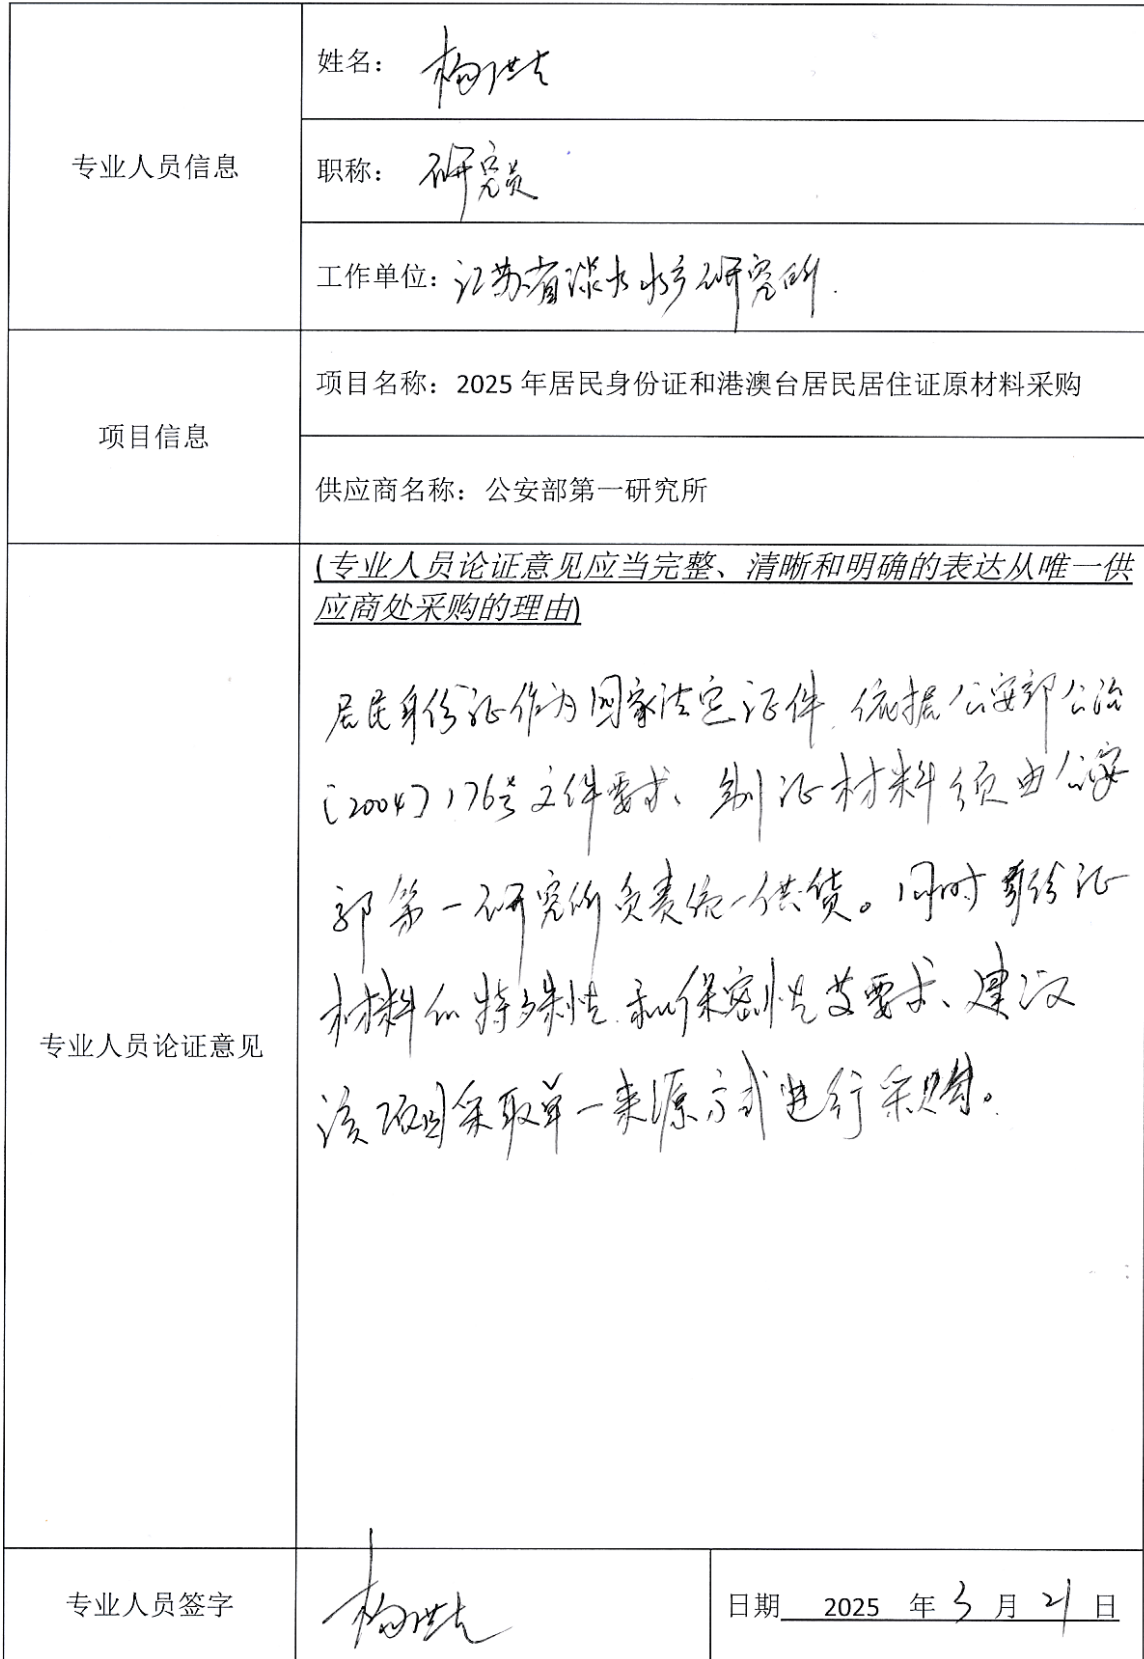 专业人员信息
姓名：杨洪
职称：研究员
工作单位：江苏省淡水水产研究所.
项目信息
项目名称：2025 年居民身份证和港澳台居民居住证原材料采购
供应商名称：公安部第一研究所
(专业人员论证意见应当完整、清晰和明确的表达从唯一供
应商处采购的理由)
专业人员论证意见
居民身份证作为国家法定证件，依据公安部公治
〔2004〕176号文件要求、制证材料须由公安
部第一研究所负责统一供货。同时身份证
材料的特殊性和保密性等要求、建议
该项目采取单一来源方式进行采购。
专业人员签字
杨洪
日期 2025 年 3 月 21 日